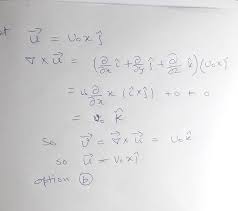 u⃗ = v₀x ĵ
∇ × u⃗ = (∂/∂x î + ∂/∂y ĵ + ∂/∂z k̂)(v₀xĵ)
= v₀ ∂/∂x x (î×ĵ) + 0 + 0
= v₀ k̂
So v⃗ = ∇ × u⃗ = v₀k̂
so u⃗ = v₀xĵ
option (b)